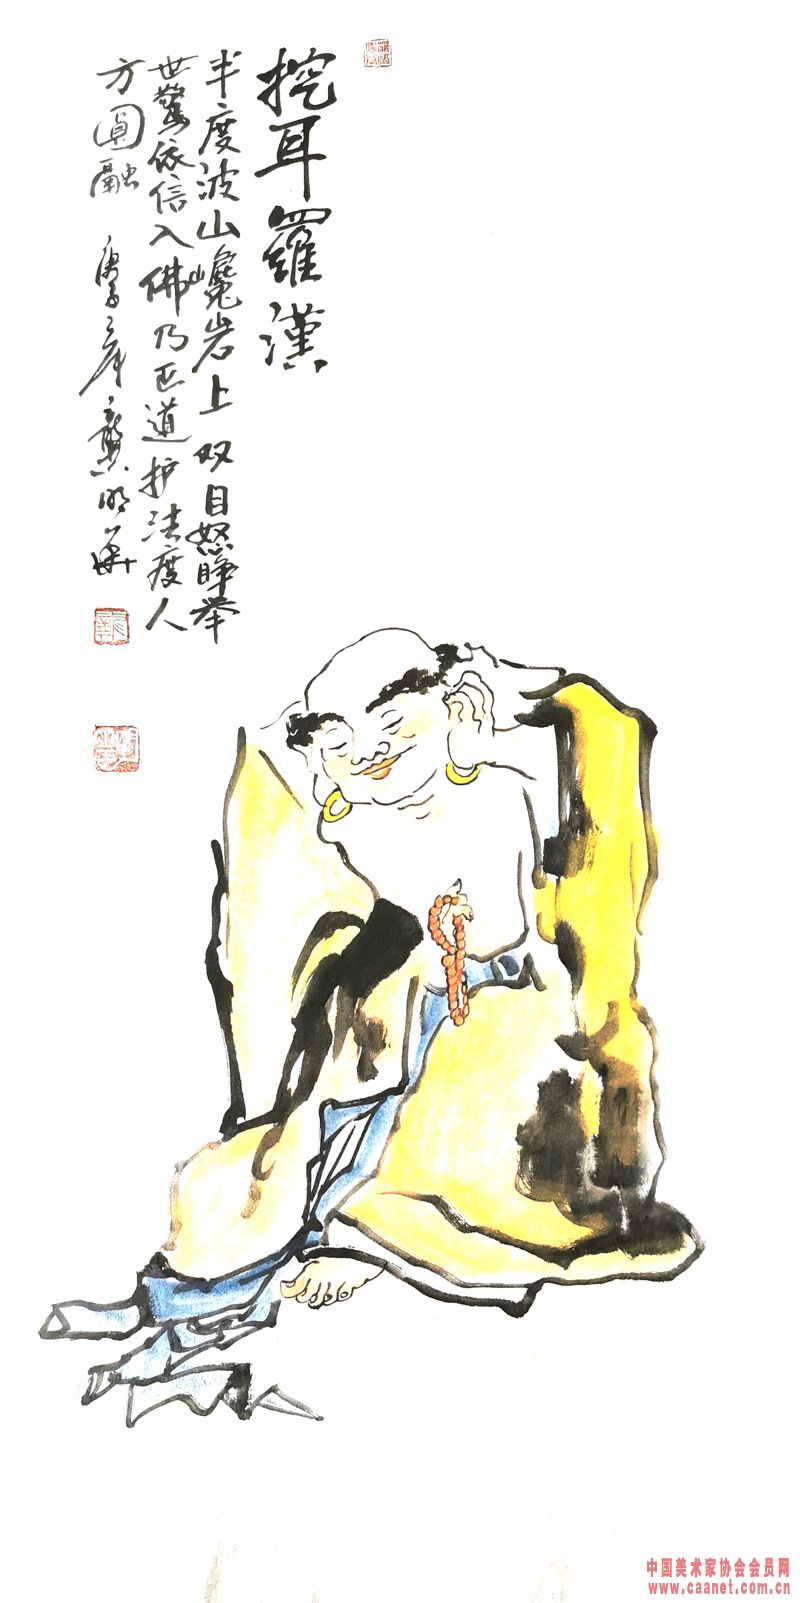 挖耳羅漢
半度波山巉岩上双目怒睁举
世驚依信入佛乃正道护法度人
方圓融 庚子之年龔明華
中国美术家协会会员网
www.caanet.com.cn